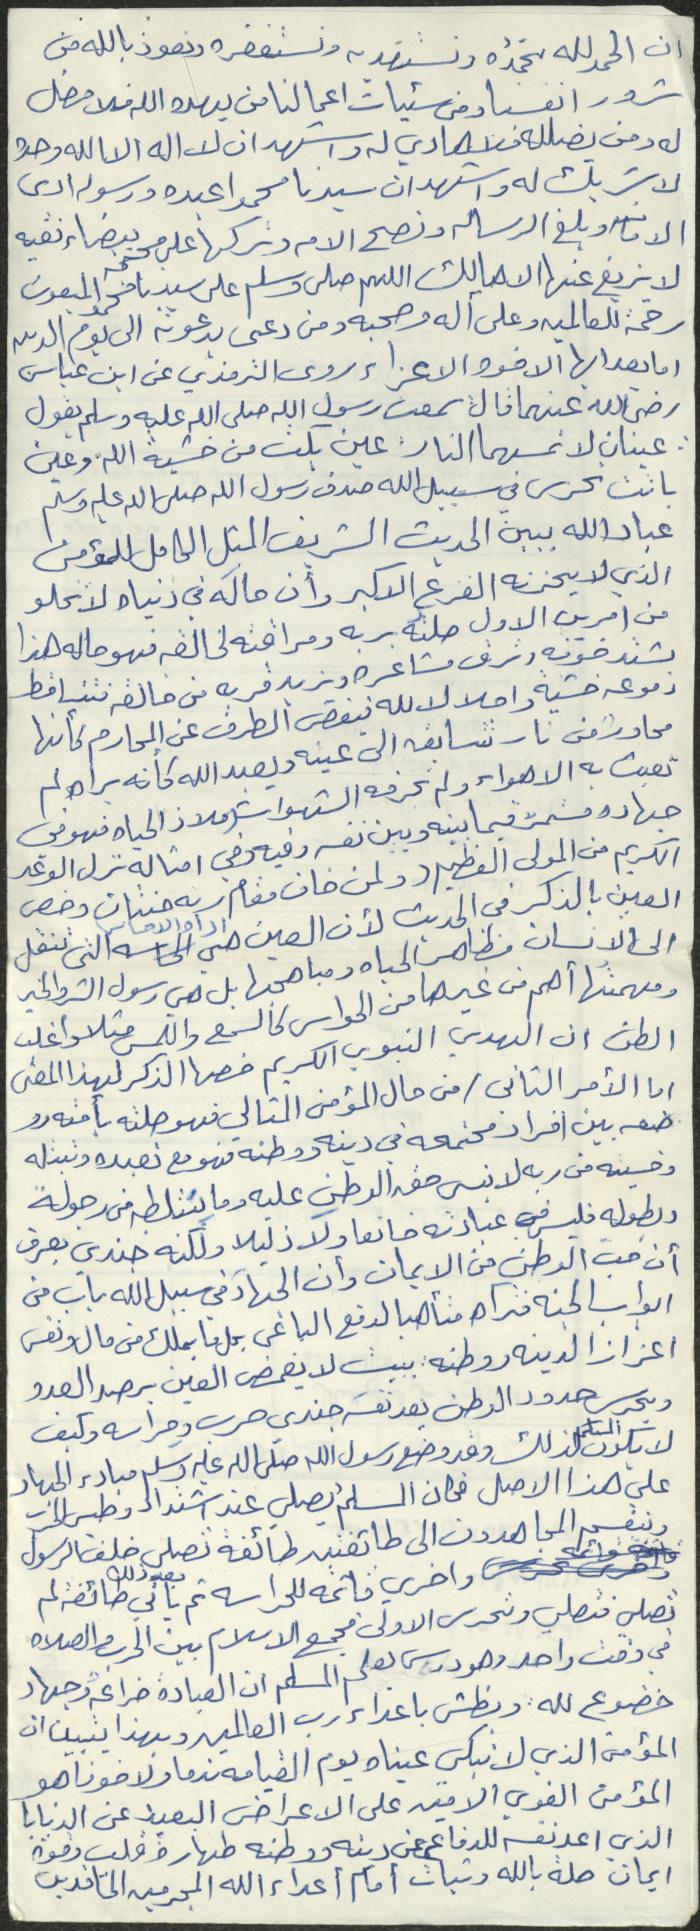 ان الحمد لله نحمده ونستهديه ونستغفره ونعوذ بالله من
شرور انفسنا ومن سيئات اعمالنا من يهده الله فلا مضل
له ومن يضلله فلا هادي له واشهد ان لا اله الا الله وحده
لا شريك له واشهد ان سيدنا محمدا عبده ورسوله ادى
الامانه وبلغ الرسالة ونصح الامه وتركها على محجه بيضاء نقيه
لا يزيغ عنها الا هالك اللهم صلى وسلم على سيدنا محمد المبعوث
رحمة للعالمين وعلى آله وصحبه ومن دعى بدعوته الى يوم الدين
اما بعد ايها الاخوه الاعزاء روى الترمذي عن ابن عباس
رضى الله عنهما قال سمعت رسول الله صلى الله عليه وسلم يقول
: عينان لا تمسهما النار: عين بكت من خشية الله وعين
باتت تحرس في سبيل الله صدق رسول الله صلى الله عليه وسلم
عباد الله يبين الحديث الشريف المثل الكامل للمؤمن
الذي لا يحزنه الفزع الاكبر وأن حاله في دنياه لا تخلو
من امرين الاول صلته بربه ومراقبته لخالقه فهو حاله هذا
يشتد خوفه وترق مشاعره ويزيد قربه من خالقه تتساقط
دموعه خشية واجلالا لله فيغض الطرف عن المحارم كأنها
محاوره من نار تتسابق الى عينه ويعبد الله كأنه يراه لم
تعبث به الاهواء ولم تجرفه الشهوات وملاذ الحياه فهو في
جهاده مستمر فيما بينه وبين نفسه وفيه وفي امثاله نزل الوعد
الكريم من المولى العظيم (ولمن خاف مقام ربه جنتان وخص
العين بالذكر في الحديث لأن العين هي اداة الاحساس التي تنقل
الى الانسان مظاهر الحياه ومباهجها بل هي رسول الشر والخير
ومهمتها أهم من غيرها من الحواس كالسمع واللمس مثلا وأغلب
الظن ان الهدي النبوي الكريم خصها الذكر لهذا المعنى
اما الأمر الثاني / من حال المؤمن المثالي فهو صلته بأمته و
ضعه بين افراد مجتمعه في دينه ووطنه فهو مع تعبده وتبتله
وخشيته من ربه لا ينسى حق الوطن عليه وما يتطلبه من رجولة
وبطوله فليس في عبادته خانعا ولا ذليلا ولكنه جندى يعرف
أن حب الوطن من الايمان وأن الجهاد في سبيل الله باب من
ابواب الجنه فتراه متأهبا لدفع الباغي بكل ما يملك من مال ونفس
اعزازا لدينه ووطنه: يبيت لا يغمض العين يرصد العدو
ويحرس حدود الوطن يعد نفسه جندي حرب وحراسه وكيف
لا يكون المسلم كذلك وقد وضع رسول الله صلى الله عليه وسلم مبادء الجهاد
على هذا الاصل فكان المسلم يصلي عند اشتداد وطيس الحرب
وينقسم المجاهدون الى طائفتين طائفة تصلي خلف الرسول
واخرى قائمه للحراسه ثم يأتي بعد ذلك طائفة لم
تصلي فتصلي وتحرس الاولى فجمع الاسلام بين الحرب والصلاه
في وقت واحد وهو درس لعلم المسلم ان العبادة ضراعة وجهاد
خضوع لله: وبطش باعداء رب العالمين وبهذا يتبين ان
المؤمن الذي لا تبكى عيناه يوم القيامه ندما ولا خوفا هو
المؤمن القوي الامين على الاعراض البعيد عن الدنايا
الذي اعد نفسه للدفاع عن دينه ووطنه طهارة قلب وقوة
ايمان صلة بالله وثبات أمام أعداء الله المجرمين الحاقدين